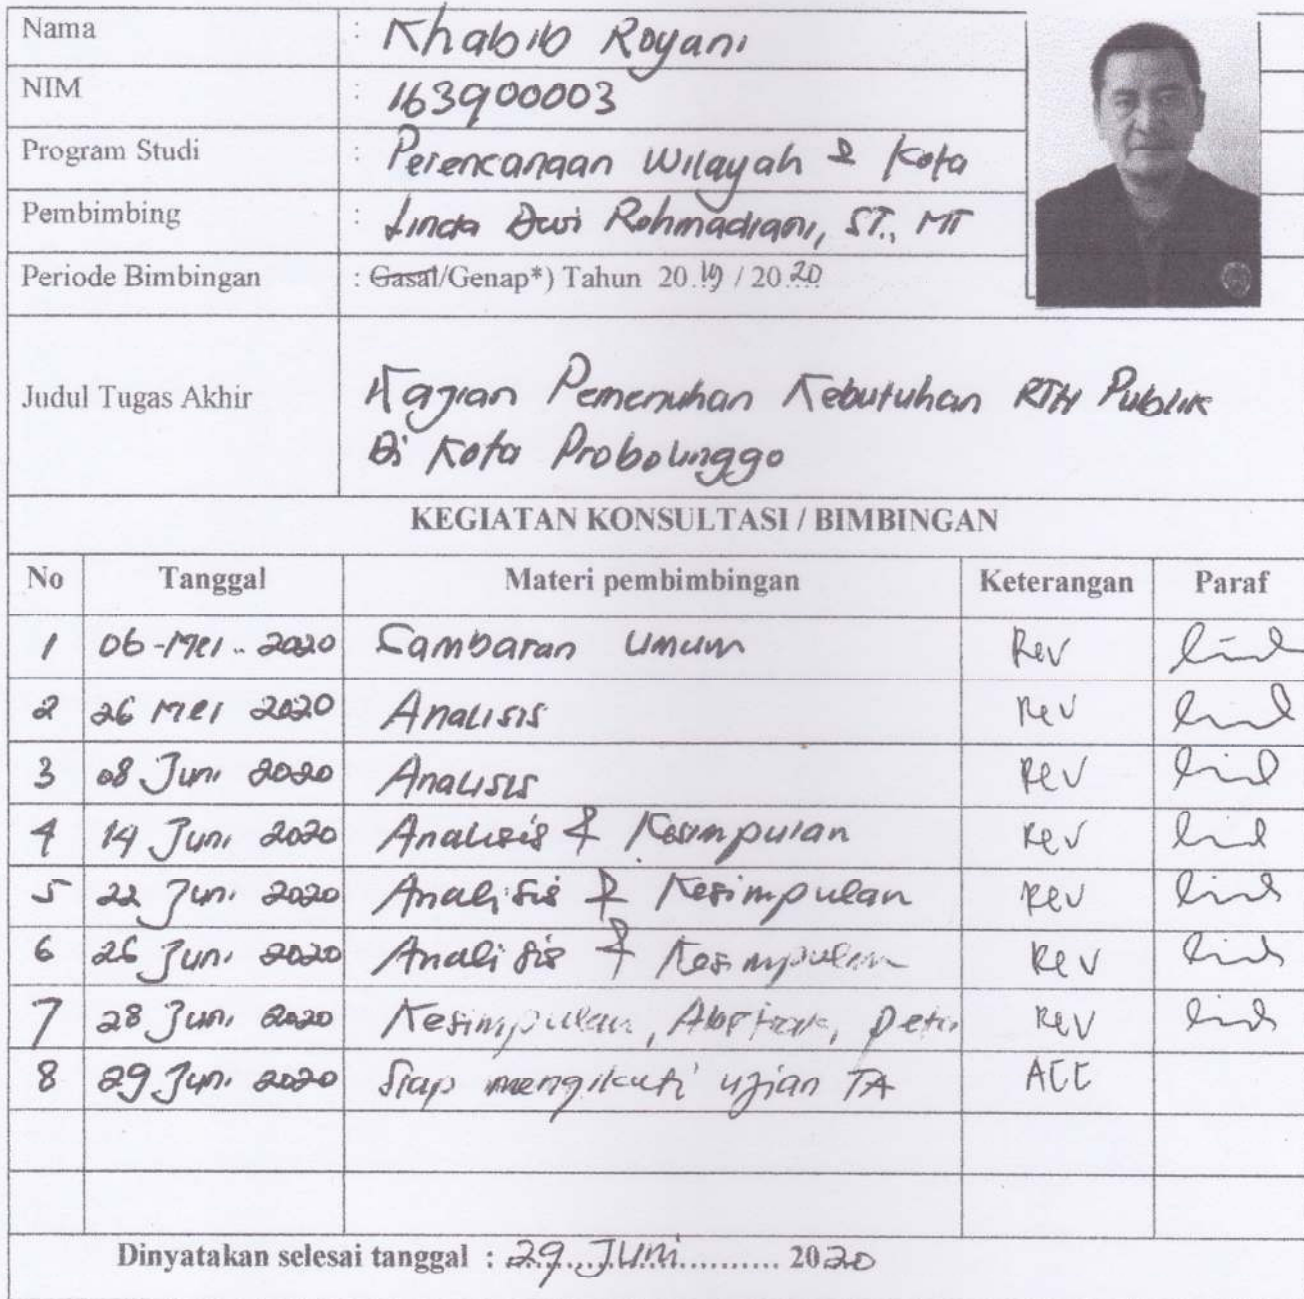 Nama : Khabib Royani
NIM : 163900003
Program Studi : Perencanaan Wilayah & Kota
Pembimbing : Linda Dwi Rohmadiani, ST., MT
Periode Bimbingan : Gasal/Genap*) Tahun 20.19 / 20.20
Judul Tugas Akhir Kajian Pemenuhan Kebutuhan RTH Publik
Di Kota Probolinggo
KEGIATAN KONSULTASI / BIMBINGAN
No Tanggal Materi pembimbingan Keterangan Paraf
1 06-Mei-2020 Gambaran Umum Rev
2 26 Mei 2020 Analisis Rev
3 08 Juni 2020 Analisis Rev
4 14 Juni 2020 Analisis & Kesimpulan Rev
5 22 Juni 2020 Analisis & Kesimpulan Rev
6 26 Juni 2020 Analisis & Kesimpulan Rev
7 28 Juni 2020 Kesimpulan, Abstrak, peta Rev
8 29 Juni 2020 Siap mengikuti ujian TA ACC
Dinyatakan selesai tanggal : 29 Juni 2020